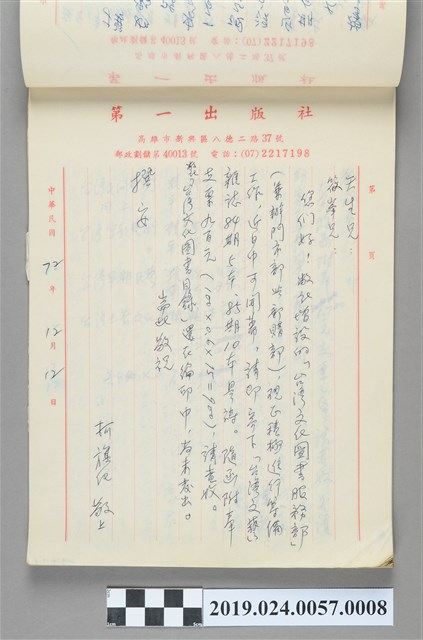 郵政劃儲第40013號 電話：(07)2217198
第一出版社
高雄市新興區八德二路37號
郵政劃儲第40013號 電話：(07)2217198
第 頁
天生兄：
筱峯兄
您们好！敝社增設的「台湾文化圖書服務部」
（兼辦門市部与郵購部），现正積極進行筹備
工作，近日中可開幕，請即寄下「台湾文藝」
雜誌84期5本、85期10本是荷。隨函附奉
支票九百元，請查收。
「台湾文化圖書目錄」還在编印中，尚未发出。
耑此敬祝
撰安
柯旗化 敬上
中華民國 72 年 12 月 12 日
2019.024.0057.0008